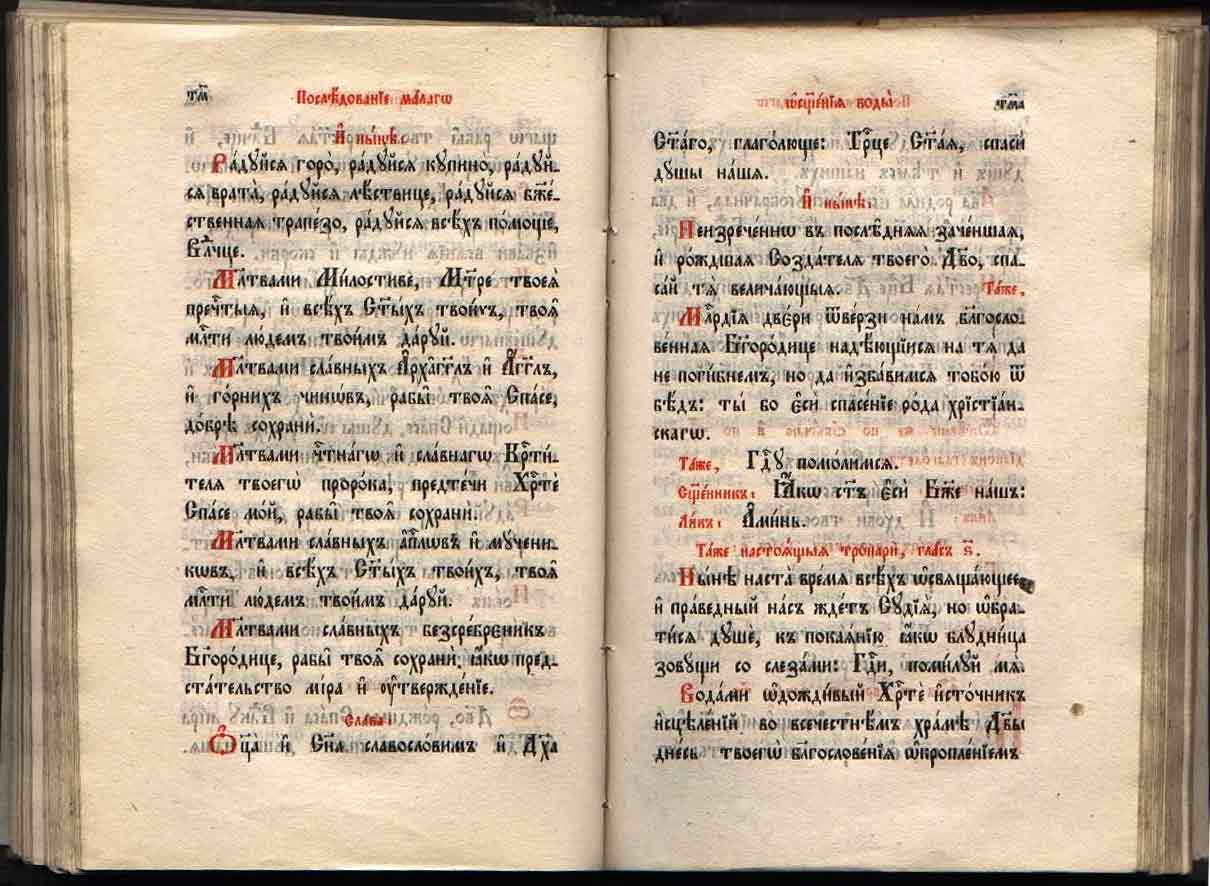 т҃м
Послѣ́дованїе ма́лагѡ
И҆ ны́нѣ:
Ра́дуйся горо̀, ра́дуйся купино̀, ра́дуй-
ся врата̀, ра́дуйся лѣ́ствице, ра́дуйся бж҃е-
ственная трапе́зо, ра́дуйся всѣ́хъ помо́ще,
Вл҃чце.
Мл҃твами Ми́лостиве, Мт҃ре твоея̀
пречⷭ҇тыя, и҆ всѣ́хъ Ст҃ы́хъ твои́хъ, твоѧ̑
мл҃ти лю́демъ твои̑мъ да́руй.
Мл҃твами сла́вныхъ А҆рха́гг҃лъ и҆ А҆́гг҃лъ,
и҆ го́рнихъ чинѡ́въ, рабы̑ твоѧ̑ Спа́се,
до́брѣ сохранѝ.
Мл҃твами чт҃на́гѡ и҆ сла́внагѡ Крт҃и́-
теля твоегѡ̀ проро́ка, предте́чи Хрⷭ҇тѐ
Спа́се мо́й, рабы̑ твоѧ̑ сохранѝ.
Мл҃твами сла́вныхъ а҆пⷭ҇лѡвъ и҆ му́чени-
кѡвъ, и҆ всѣ́хъ Ст҃ы́хъ твои́хъ, твоѧ̑
мл҃ти лю́демъ твои̑мъ да́руй.
Мл҃твами сла́вныхъ безсре́бреникъ
Бг҃оро́дице, рабы̑ твоѧ̑ сохранѝ: ꙗ҆́кѡ пред-
ста́тельство мі́ра и҆ ᲂу҆твержде́нїе.
Сла́ва
Ѻ҆ц҃а̀ и҆ Сн҃а славосло́вимъ и҆ Дх҃а
ѡ҆сщ҃е́нїя воды̀
т҃ма
Ст҃а́го, глаго́люще: Трⷪ҇це Ст҃а́я, спасѝ
ду́шы на́шя.
И҆ ны́нѣ:
Неизрече́ннѡ въ послѣ̑дняя заче́ншая,
и҆ ро́ждшая Созда́теля твоего̀ Дв҃о, спа-
са́й тѧ̀ велича́ющыя.
Та́же,
Млⷭ҇рдїя две́ри ѿве́рзи на́мъ блг҃осло-
ве́нная Бг҃оро́дице надѣ́ющїися на тѧ̀ да
не поги́бнемъ, но да и҆зба́вимся тобо́ю ѿ
бѣ́дъ: ты́ бо є҆сѝ спасе́нїе ро́да хрїстїа́н-
скагѡ.
Та́же, Гдⷭ҇у помо́лимся.
Сщ҃е́нникъ: Ꙗ҆́кѡ ст҃ъ є҆сѝ Бж҃е на́шъ:
Ли́къ: А҆ми́нь.
Та́же настоя́щыя тропарѝ, гла́съ ѕ҃.
Ны́нѣ наста̀ вре́мя всѣ́хъ ѡ҆свяща́ющее
и҆ пра́ведный на́съ жде́тъ Судїя̀, но ѡ҆бра-
ти́ся душѐ, къ покая́нїю ꙗ҆́кѡ блудни́ца
зову́щи со слеза́ми: Гдⷭ҇и, поми́луй мѧ̀.
Вода́ми ѡ҆дожди́вый Хрⷭ҇тѐ и҆сто́чникъ
и҆сцѣле́нїй во всечестнѣ́мъ хра́мѣ Дв҃ы
дне́сь твоегѡ̀ блг҃ослове́нїя ѡ҆кропле́нїемъ